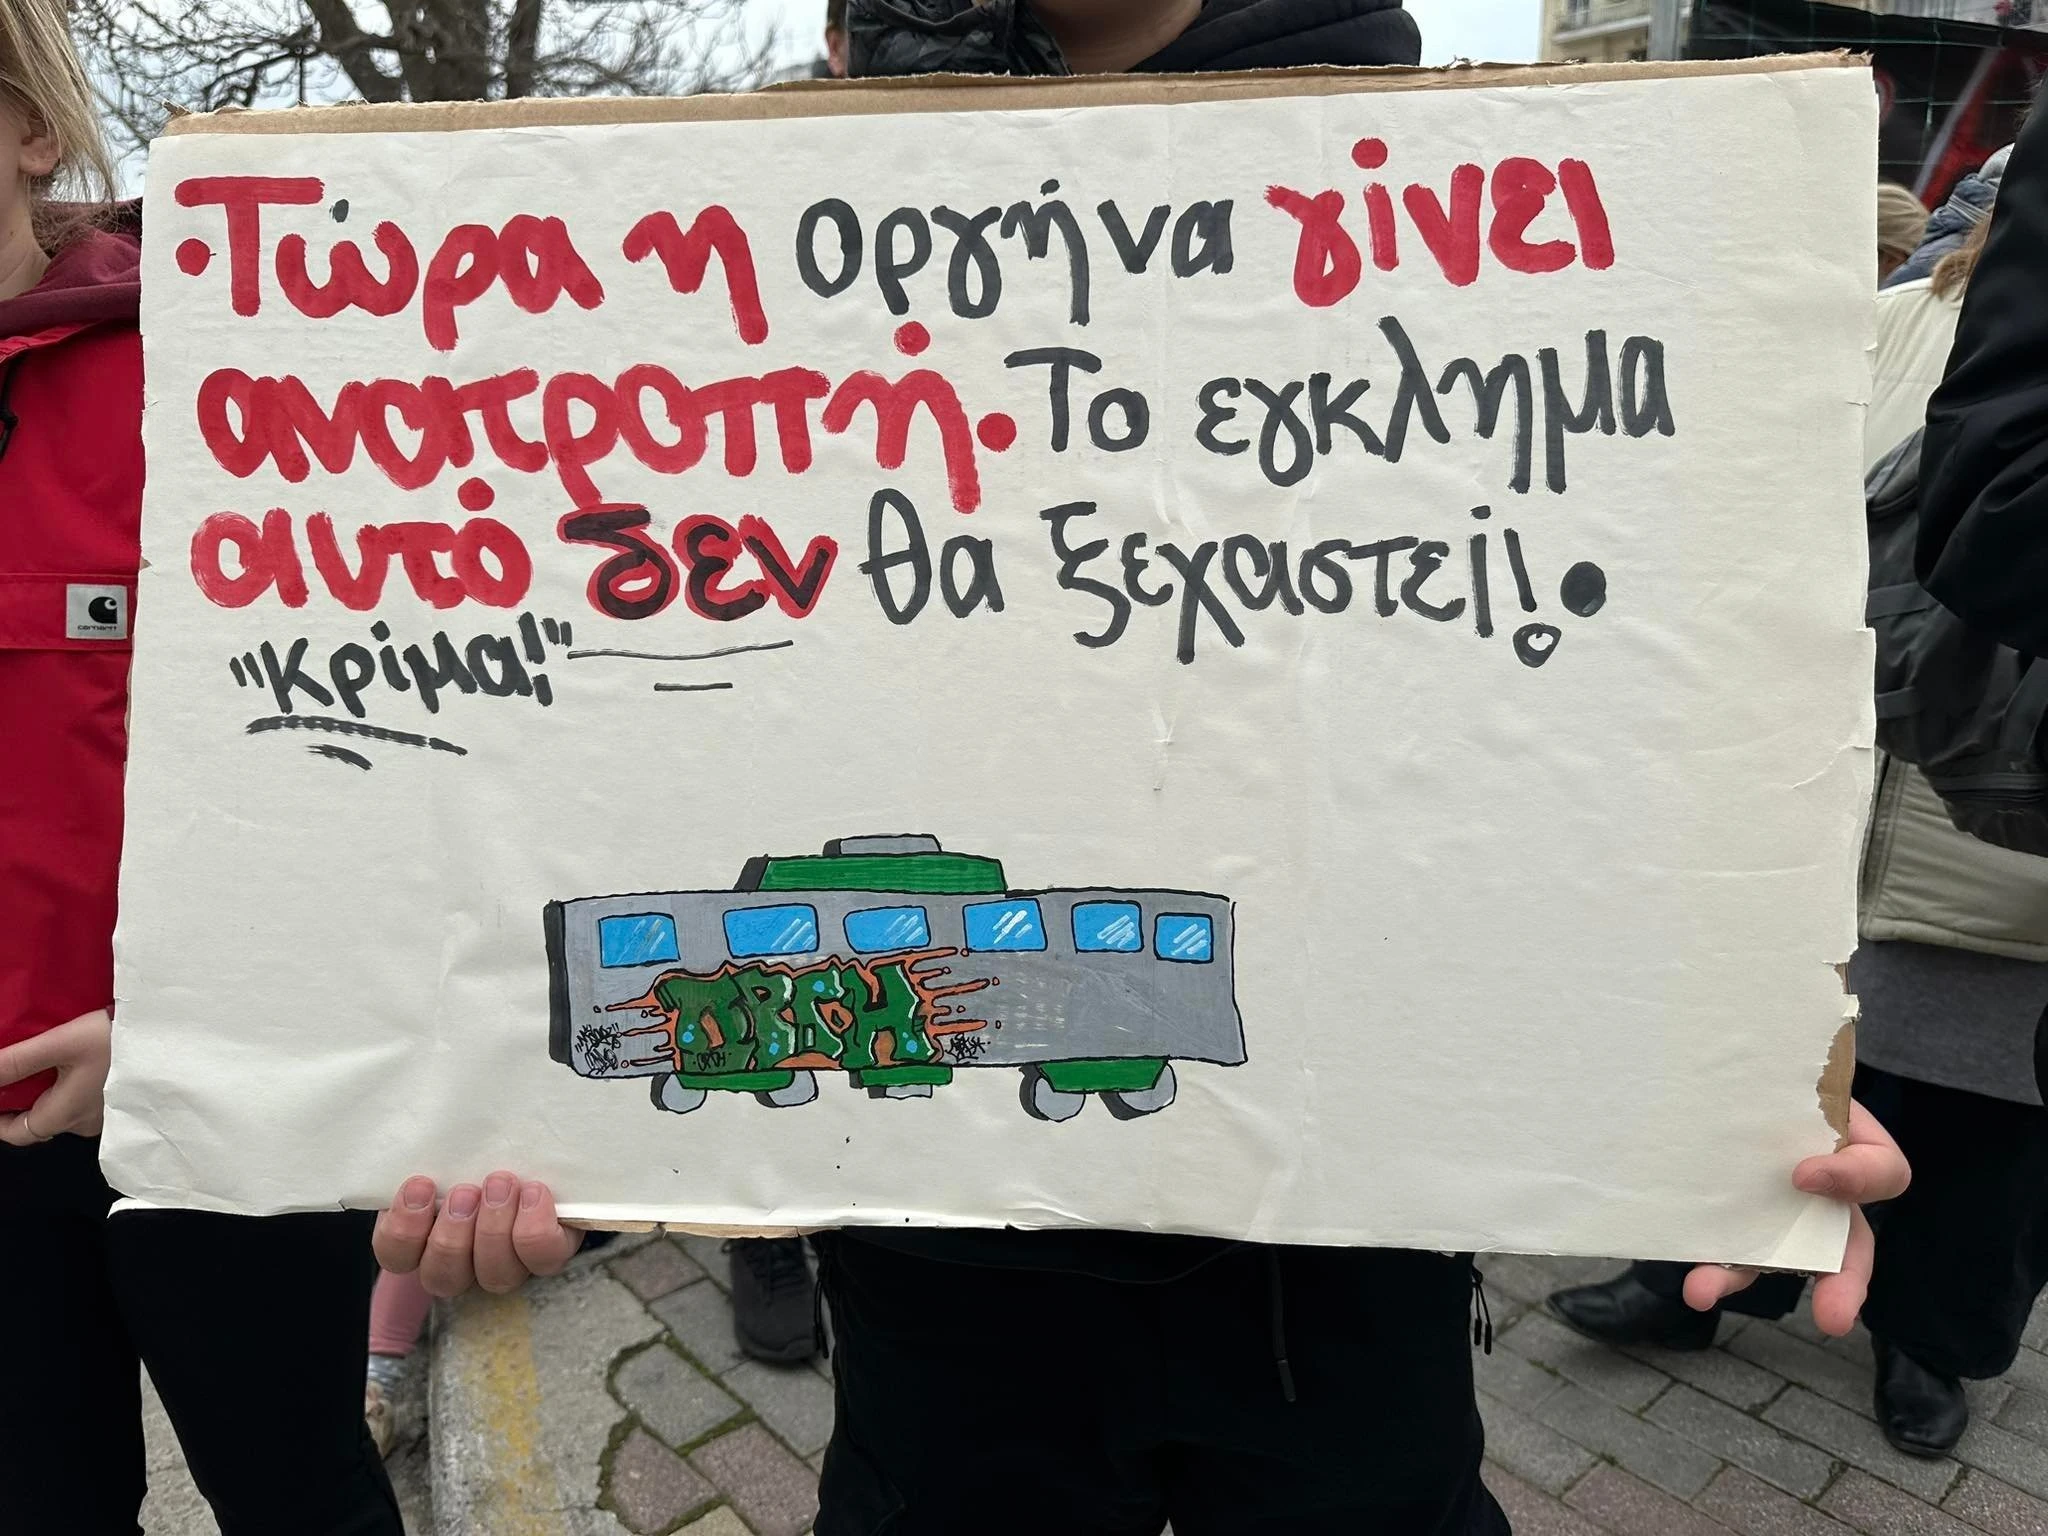 ·Τώρα η οργή να γίνει
ανατροπή·Το εγκλημα
αυτό δεν θα ξεχαστεί!
"Κρίμα!"
ΟΡΓΗ
carhartt